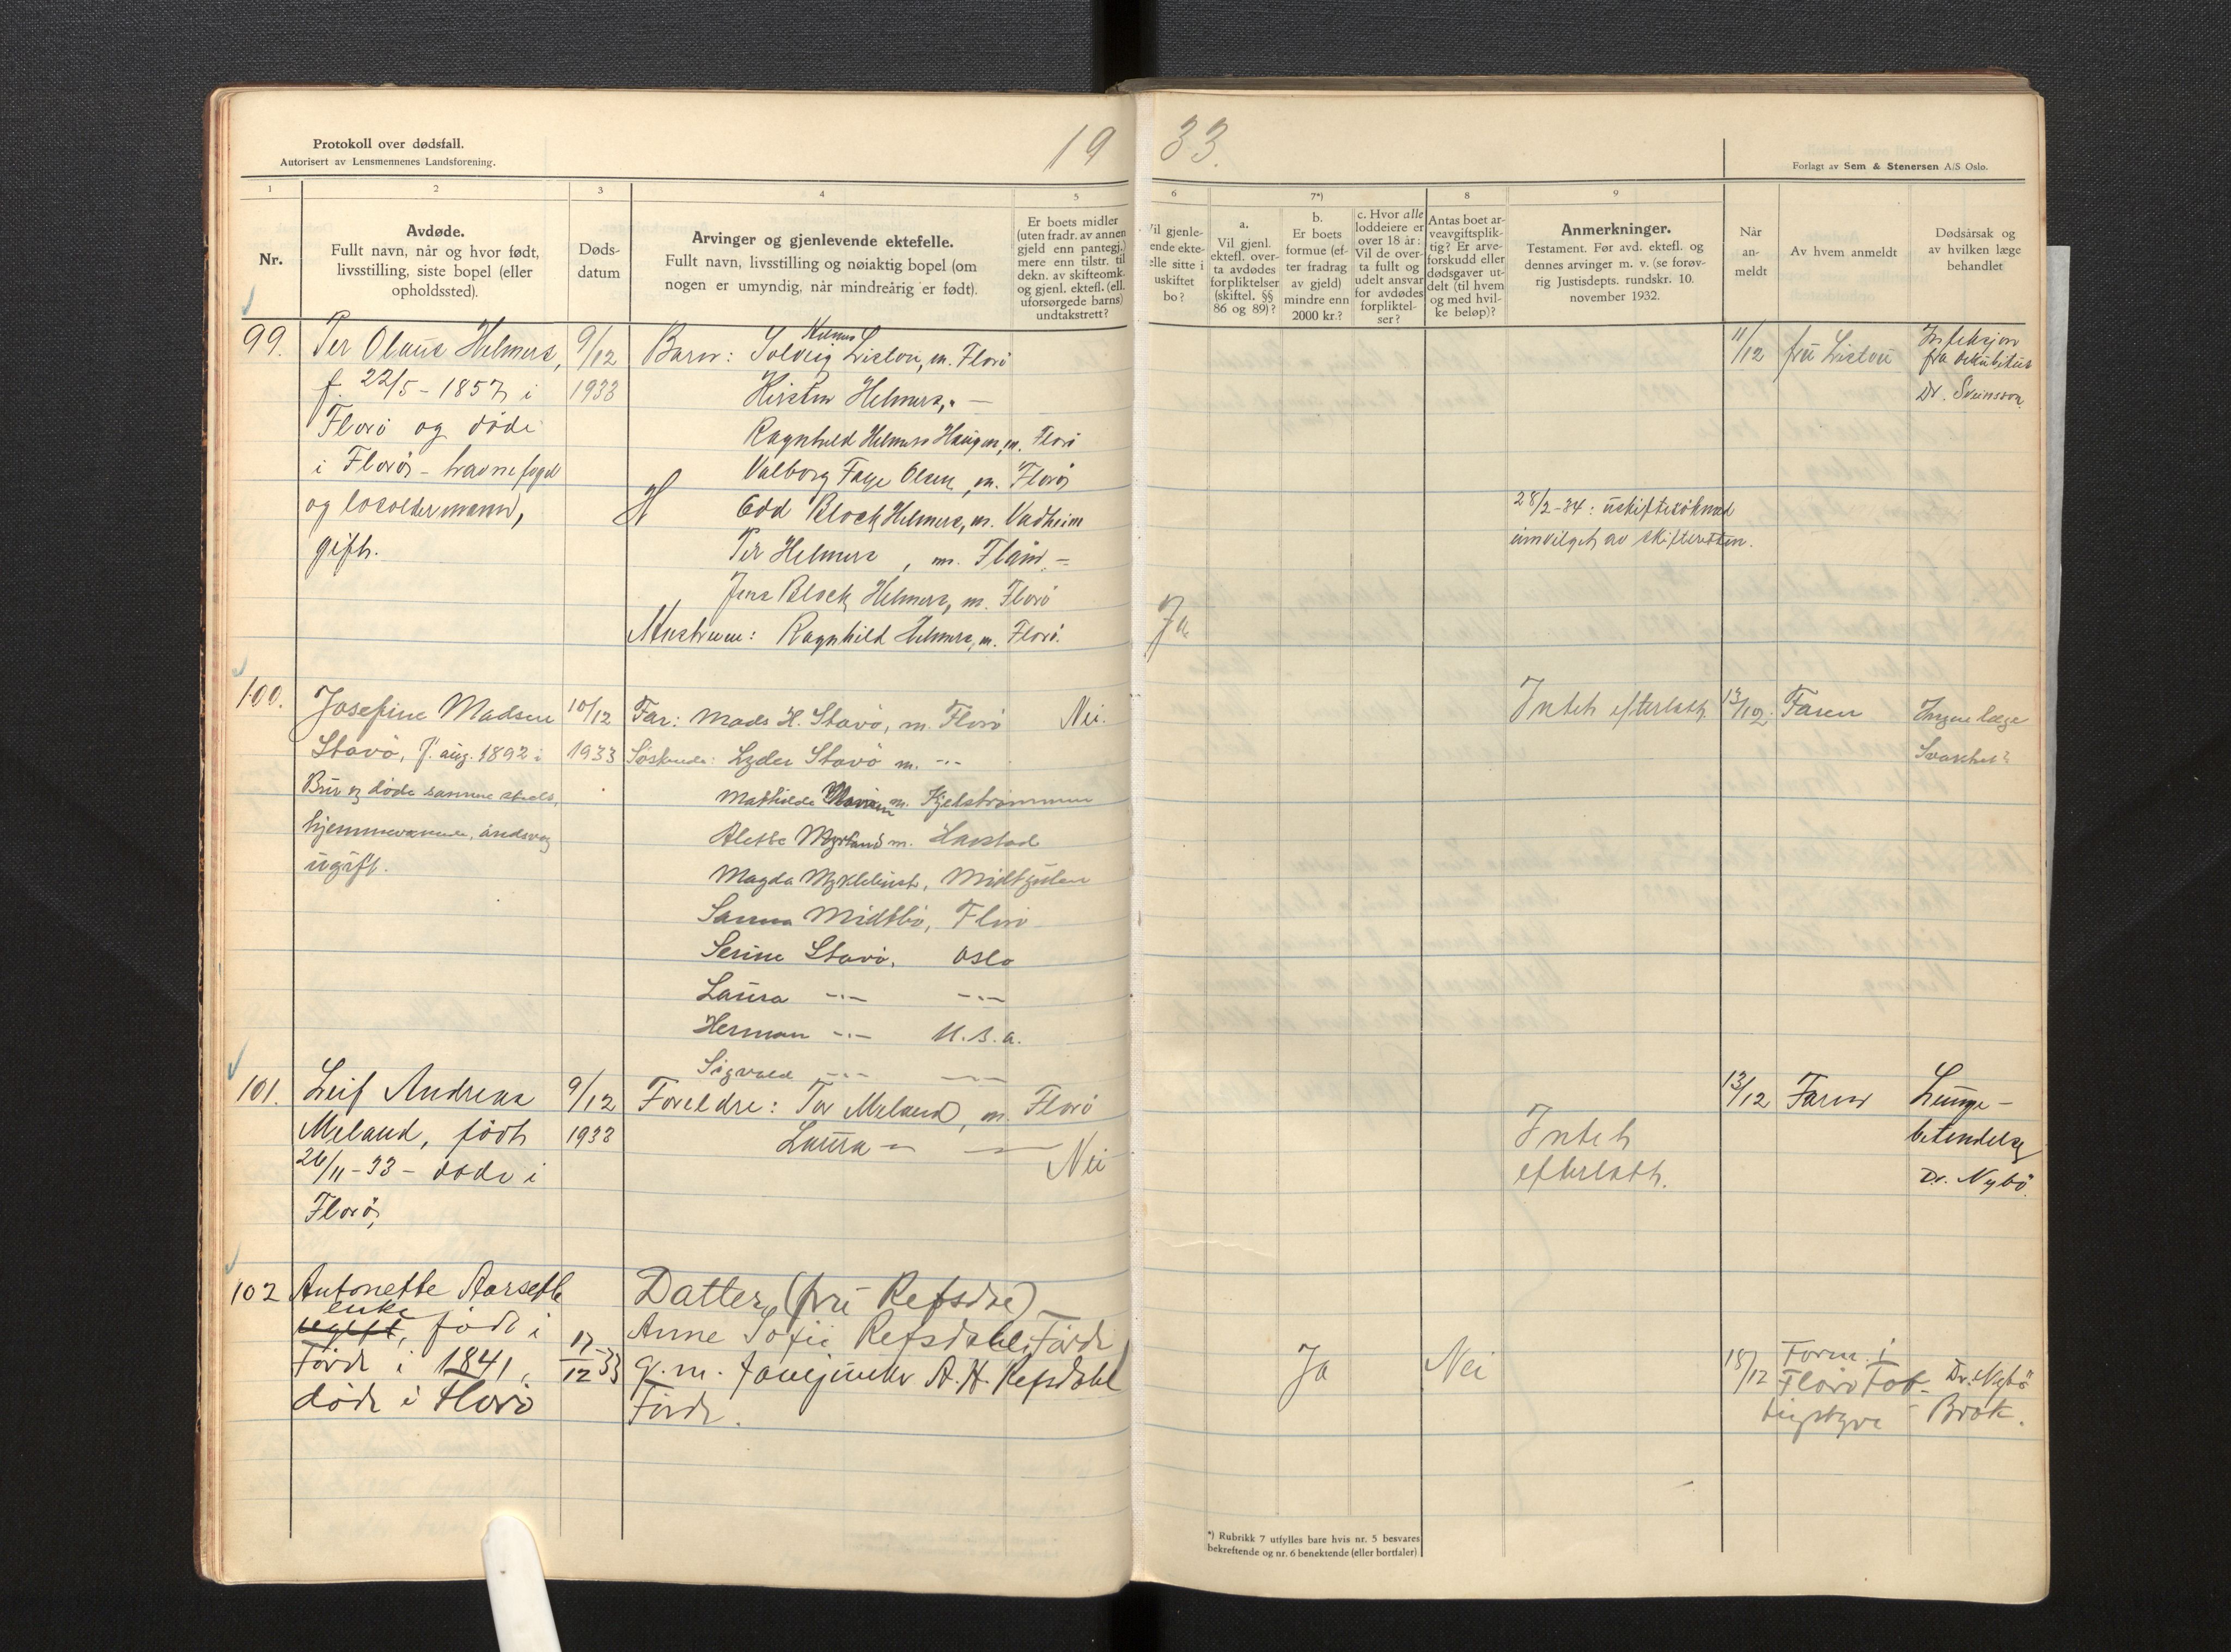 Protokoll over dødsfall.
Autorisert av Lensmennenes Landsforening.
19 33.
Forlagt av Sem & Stenersen A/S Oslo.
1 2 3 4 5 6 7*) 8 9
Nr.
Avdøde.
Fullt navn, når og hvor født,
livsstilling, siste bopel (eller
opholdssted).
Døds-
datum
Arvinger og gjenlevende ektefelle.
Fullt navn, livsstilling og nøiaktig bopel (om
nogen er umyndig, når mindreårig er født).
Er boets midler
(uten fradr. av annen
gjeld enn pantegj.)
mere enn tilstr. til
dekn. av skifteomk.
og gjenl. ektefl. (ell.
uforsørgede barns)
undtakstrett?
Vil gjenle-
ende ekte-
elle sitte i
uskiftet
bo?
a.
Vil gjenl.
ektefl. over-
ta avdødes
forpliktelser
(skiftel. §§
86 og 89)?
b.
Er boets
formue (ef-
ter fradrag
av gjeld)
mindre enn
2000 kr.?
c. Hvor alle
loddeiere er
over 18 år:
Vil de over-
ta fullt og
udelt ansvar
for avdødes
forpliktel-
ser?
Antas boet ar-
veavgiftsplik-
tig? Er arve-
forskudd eller
dødsgaver ut-
delt (til hvem
og med hvil-
ke beløp)?
Anmerkninger.
Testament. Før avd. ektefl. og
dennes arvinger m. v. (se forøv-
rig Justisdepts. rundskr. 10.
november 1932.
Når
an-
meldt
Av hvem anmeldt
Dødsårsak og
av hvilken læge
behandlet
99.
Per Olaus Helmers,
f. 22/5 - 1857 i
Florö og döde
i Florö - havnefoged
og losoldermann,
gift.
9/12
1933
Barn: Solveig Helmers Listou, m. Florö
Kirsten Helmers, " —
Ragnhild Helmers Haugen, m. Florö
Valborg Faye Olsen, m. Florö
Odd Block Helmers, m. Vadheim
Per Helmers, m. Flåm. -
Jens Block Helmers, m. Florö
Hustruen: Ragnhild Helmers, m. Florö.
Ja
28/2-34: uskiftesöknad
innvilget av skifteretten.
11/12
fru Listou
Infeksjon
fra dekubitus
Dr. Sveinsson.
100.
Josefine Madsen
Stavö, f. aug. 1892 i
Bru og döde samme steds,
hjemmeværende, åndssvag
ugift.
10/12
1933
Far: Mads H. Stavö, m. Florö
Söskende: Lyder Stavö m. -"-
Mathilde m. Hjelströmmen
Alette Myrland m. Harstad
Magda Myklebust, Midtgulen
Sanna Midtbö, Florö
Serine Stavö, Oslo
Laura -"- -"-
Herman -"- U.S.a.
Sigvald -"- -"-
Nei.
Intet efterlatt.
13/12.
Faren
Ingen læge
Svakhet?
101.
Leif Andreas
Meland, födt
26/11-33 - döde i
Florö,
9/12
1933
Foreldre: Tor Meland, m. Florö
Laura -"- -"-
Nei
Intet
efterlatt.
13/12
Faren
Lunge-
betendelse
Dr. Nybö.
102
Antonette Aarseth
enke
ugift, född i
Förde i 1841,
döde i Florö
17/12 33
Datter, (fru Refsdal)
Anne Sofie Refsdahl, Förde
g. m. A. H. Refsdahl
Förde.
Ja
Nei
18/12
Form. i
Florö Fat-
tigstyre
Dr. Nybö
- Brok.
*) Rubrikk 7 utfylles bare hvis nr. 5 besvares
bekreftende og nr. 6 benektende (eller bortfaller)